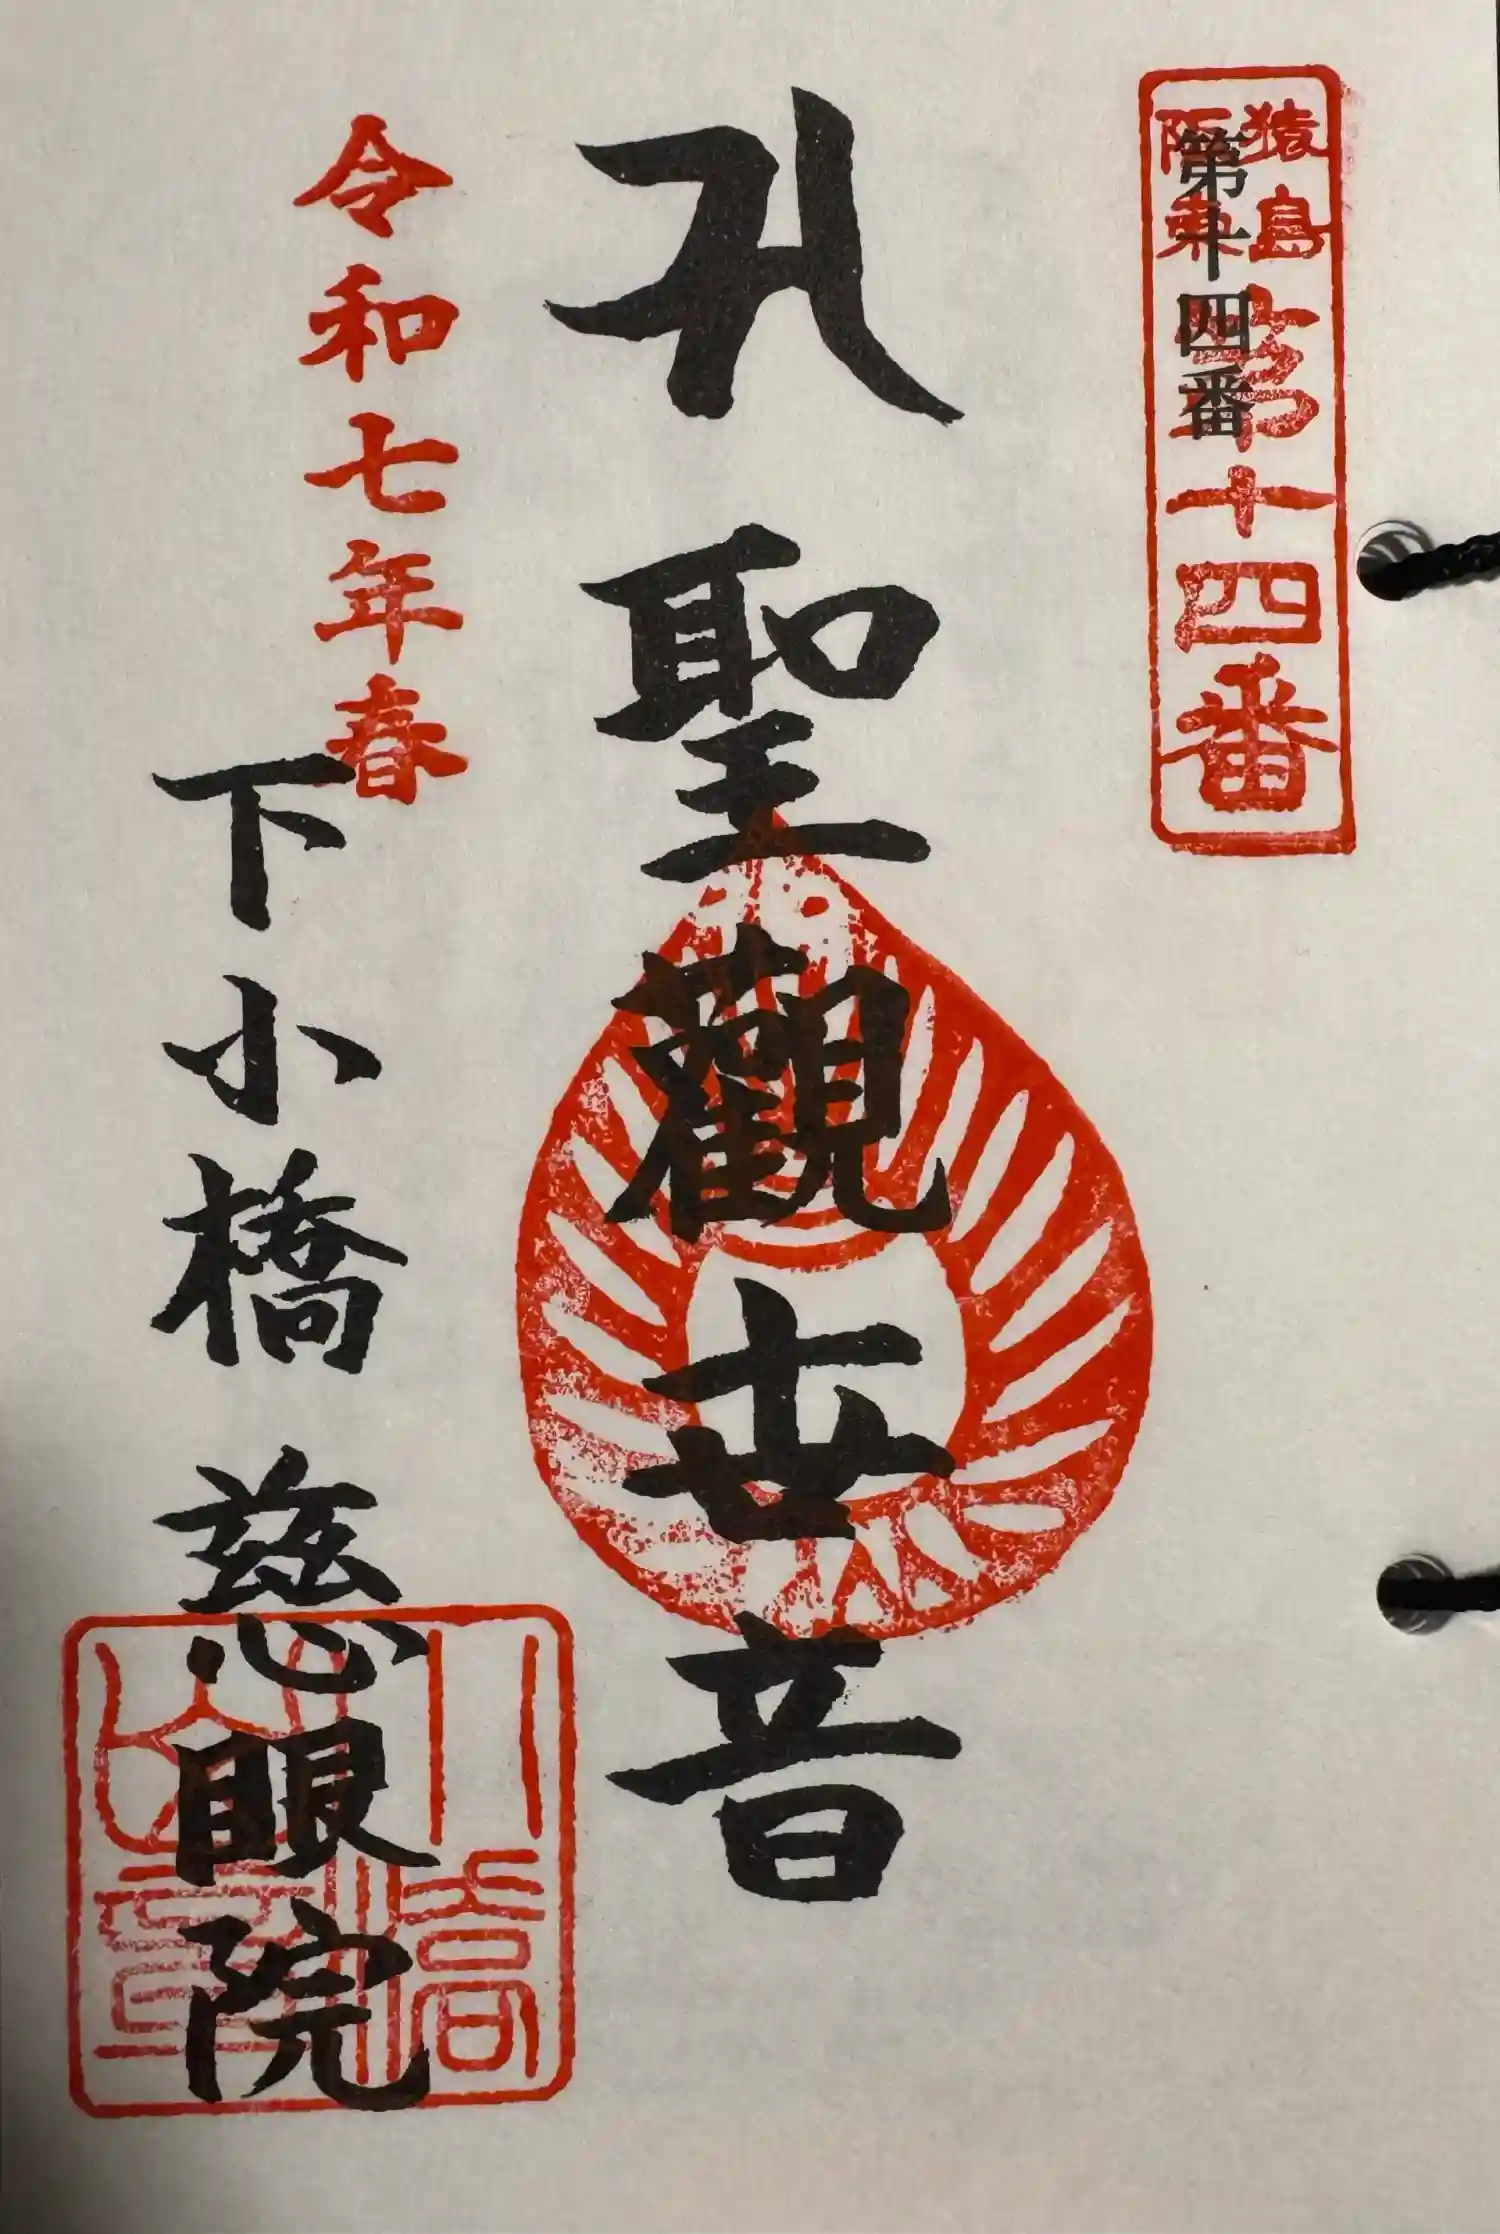 猿島
阪東
第十四番
第十四番
𑖭 聖觀世音
令和七年春
下小橋 慈眼院